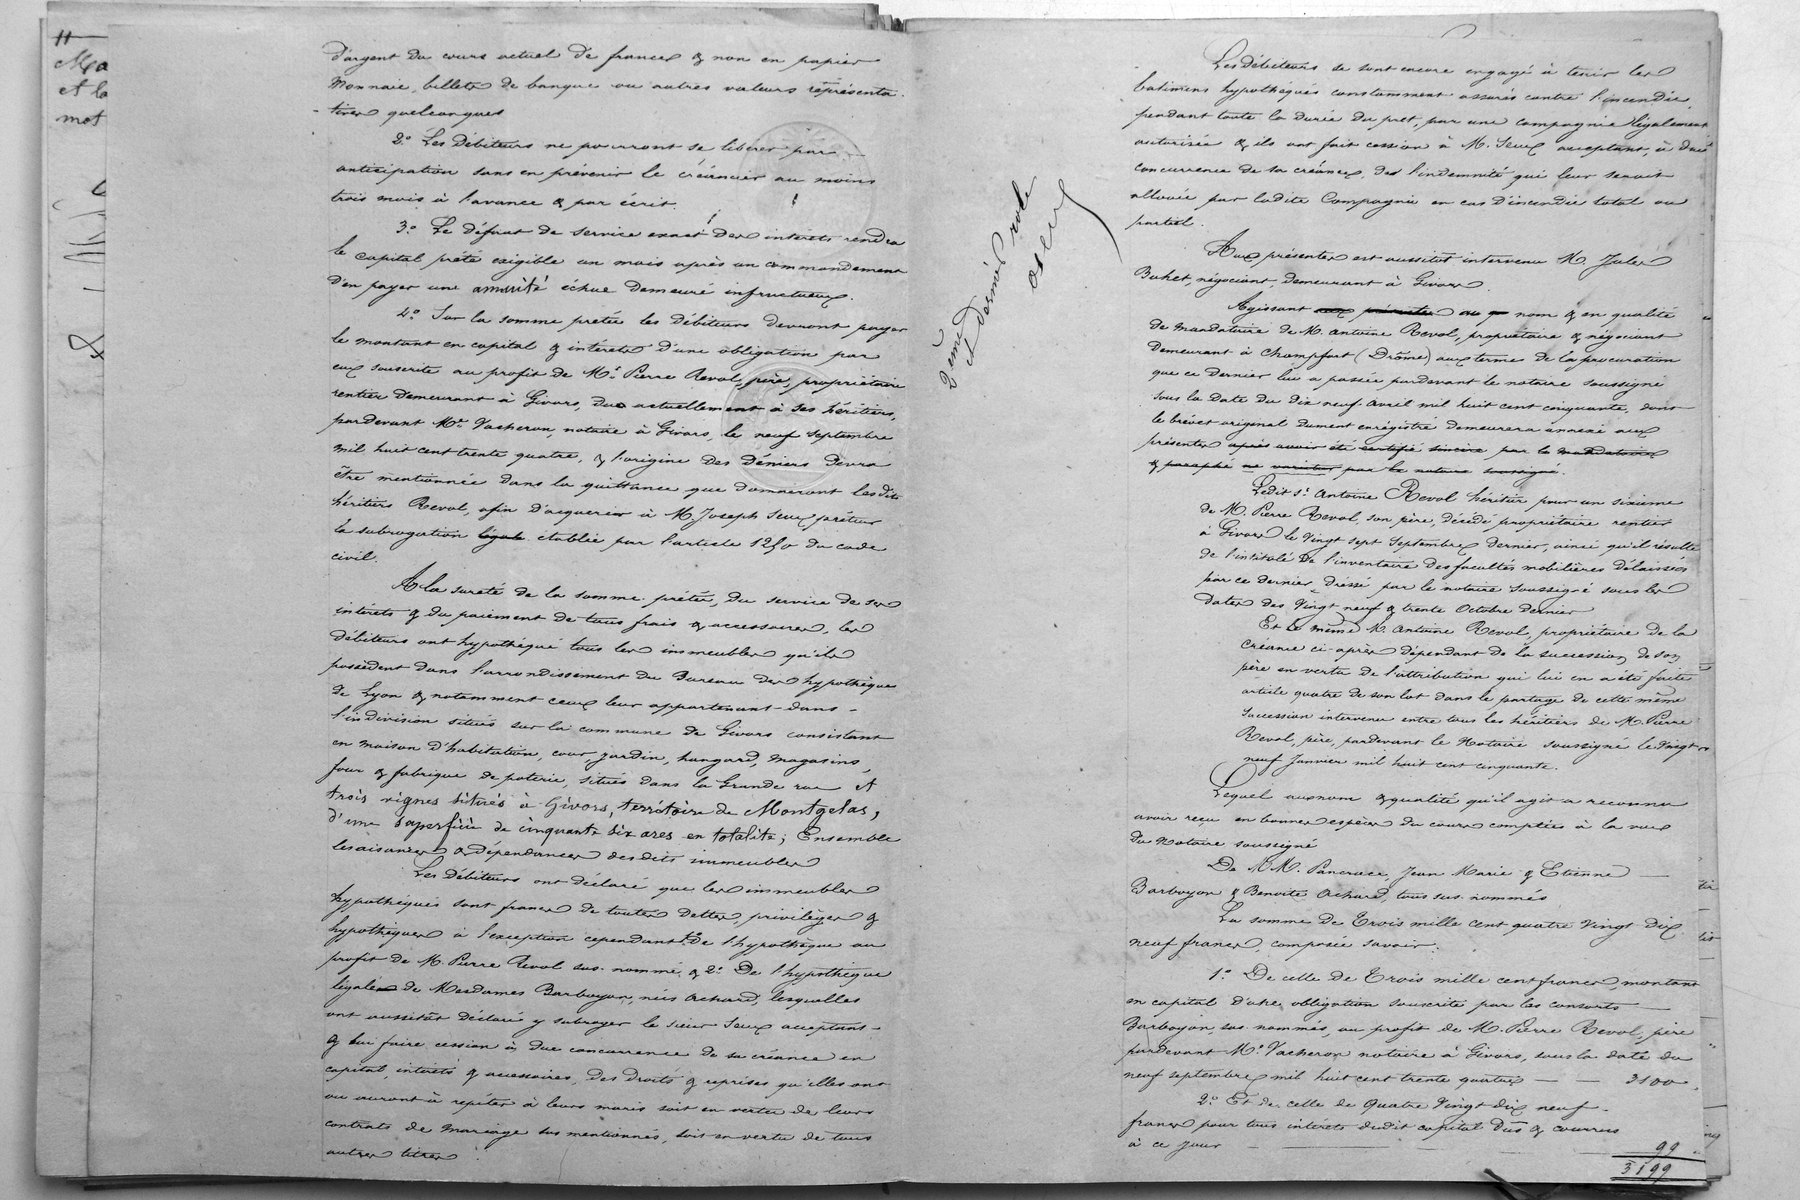 d'argent du cours actuel de france & non en papier
monnaie, billets de banque ou autres valeurs représenta-
-tives quelconques
2.° Les Débiteurs ne pourront se libérer par
anticipation sans en prévenir le créancier au moins
trois mois à l'avance & par écrit.
3.° Le défaut de service exact des intérêts rendra
le capital prêté exigible un mois après un commandement
d'en payer une annuité échue demeuré infructueux.
4.° Sur la somme prêtée les débiteurs devront payer
le montant en capital & intérêts d'une obligation par
eux souscrite au profit de Mr. Pierre Revol, père, propriétaire
rentier demeurant à Givors, due actuellement à ses héritiers,
pardevant Me. Vacheron, notaire à Givors, le neuf septembre
mil huit cent trente quatre, & l'origine des Deniers devra
être mentionnée dans la quittance que donneront lesdits
héritiers Revol, afin d'acquérir à M. Joseph Seux prêteur
la subrogation légale établie par l'article 1250 du code
civil.
A la sureté de la somme prêtée, du service de ses
intérêts & du paiement de tous frais & accessoires, les
débiteurs ont hypothéqué tous les immeubles qu'ils
possèdent dans l'arrondissement du Bureau des hypothèques
de Lyon & notamment ceux leur appartenant dans
l'indivision situés sur la commune de Givors consistant
en maison d'habitation, cour, jardin, hangard, magasins,
four & fabrique de poterie, situés dans la Grande rue et
trois vignes situés à Givors, territoire de Montgelas,
d'une superficie de cinquante six ares en totalité; Ensemble
les aisances & dépendances desdits immeubles
Les Débiteurs ont déclaré que les immeubles
hypothéqués sont francs de toutes dettes, privilèges &
hypothèques à l'exception cependant 1.° de l'hypothèque au
profit de M. Pierre Revol sus-nommé, & 2.° De l'hypothèque
légale de Mesdames Barboyon, nées Achard, lesquelles
ont aussitôt déclaré y subroger le sieur Seux acceptant
& lui faire cession à due concurrence de sa créance en
capital, intérêts & accessoires, des droits & reprises qu'elles ont
ou auront à répéter à leurs maris soit en vertu de leurs
contrats de mariage sus mentionnés, soit en vertu de tous
autres titres.
2ème et dernier role
Les débiteurs se sont encore engagé à tenir les
batimens hypothéqués constamment assurés contre l'incendie,
pendant toute la durée du prêt, par une compagnie légalement
autorisée & ils ont fait cession à M. Seux acceptant, à due
concurrence de sa créance, de l'indemnité qui leur serait
allouée par ladite Compagnie en cas d'incendie total ou
partiel.
Aux présentes est aussitôt intervenu M. Jules
Buhet, négociant, demeurant à Givors.
Agissant aux présentes au nom & en qualité
de mandataire de M. Antoine Revol, propriétaire & négociant
demeurant à Champfort (Drôme) aux terme de la procuration
que ce dernier lui a passée pardevant le notaire soussigné
sous la date du dix neuf avril mil huit cent cinquante, dont
le brevet original dument enrégistré demeurera annexé aux
présentes après avoir été certifié sincère par le mandataire
& paraphé ne varietur par le notaire soussigné.
Ledit Sr. Antoine Revol héritier pour un sixième
de M. Pierre Revol, son père, décédé propriétaire rentier
à Givors le vingt sept septembre dernier, ainsi qu'il résulte
de l'intitulé de l'inventaire des facultés mobilières délaissées
par ce dernier, dressé par le notaire soussigné sous les
dates des vingt neuf & trente Octobre dernier
Et le même M. Antoine Revol, propriétaire de la
créance ci-après dépendant de la succession de son
père en vertu de l'attribution qui lui en a été faite
article quatre de son lot dans le partage de cette même
succession intervenu entre tous les héritiers de M. Pierre
Revol, père, pardevant le Notaire soussigné le vingt
neuf Janvier mil huit cent cinquante.
Lequel au nom & qualité qu'il agit a reconnu
avoir reçu en bonnes espèces du cours comptées à la vue
du Notaire soussigné
De MM. Pancrace, Jean Marie & Etienne
Barboyon & Benoite Achard, tous sus-nommés
La somme de Trois mille cent quatre vingt dix
neuf francs, composée savoir:
1.° De celle de Trois mille cent francs, montant
en capital d'une obligation souscrite par les consorts
Barboyon, sus-nommés, au profit de M. Pierre Revol, père
pardevant Me. Vacheron notaire à Givors, sous la date du
neuf septembre mil huit cent trente quatre — — 3100.
2.° Et de celle de Quatre vingt dix neuf
francs pour tous intérêts dudit capital dûs & courrus
à ce jour — 99
3199